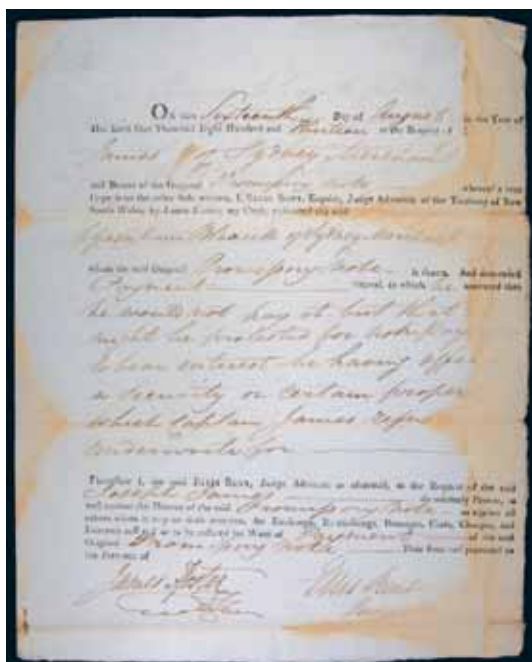 ON this Sixteenth Day of August in the Year of
Our Lord One Thousand Eight Hundred and at the Request of
James of Sydney
and Bearer of the Original Promissory note whereof a true
Copy is on the other side written, I, ELLIS BENT, Esquire, Judge Advocate of the Territory of New
South Wales, by James Foster, my Clerk, the said
of Sydney
whom the said Original Promissory note is drawn. And demanded
Payment thereof, to which he answered that
he would not pay it but that
might be protested for non Pay
to bear interest he having offer
a security on certain proper
which Captain James refus
underwrote for
Therefore I, the said ELLIS BENT, Judge Advocate as aforesaid, at the Request of the said
Joseph James do solemnly Protest, as
well against the Drawer of the said Promissory note as against all
others whom it may or doth concern, for Exchange, Re-exchange, Damages, Costs, Charges, and
Interests suffered or to be suffered for Want of Payment of the said
Original Promissory note Thus done and protested in
the Presence of
James Foster Ellis Bent